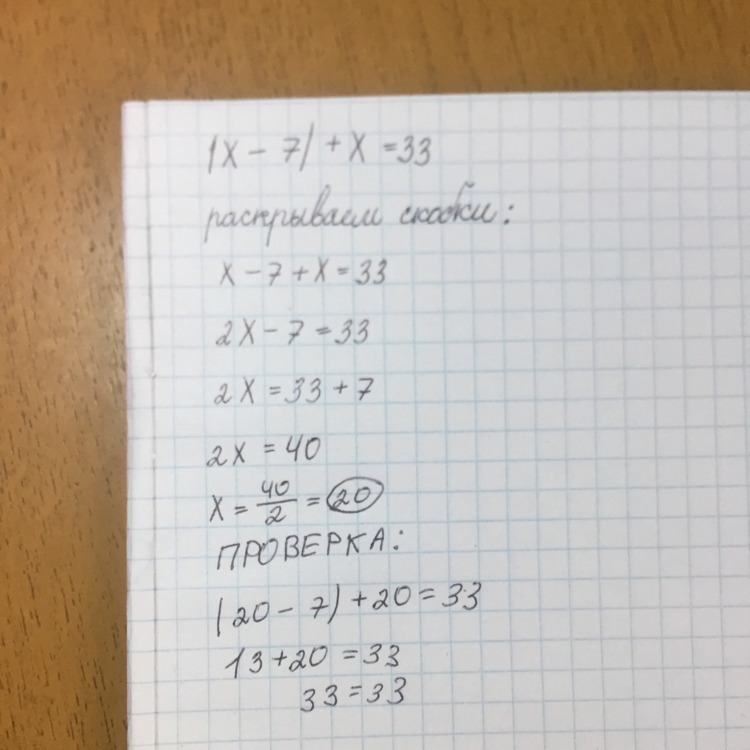 (x - 7) + x = 33
раскрываем скобки:
x - 7 + x = 33
2x - 7 = 33
2x = 33 + 7
2x = 40
x = 40/2 = 20
ПРОВЕРКА:
(20 - 7) + 20 = 33
13 + 20 = 33
33 = 33